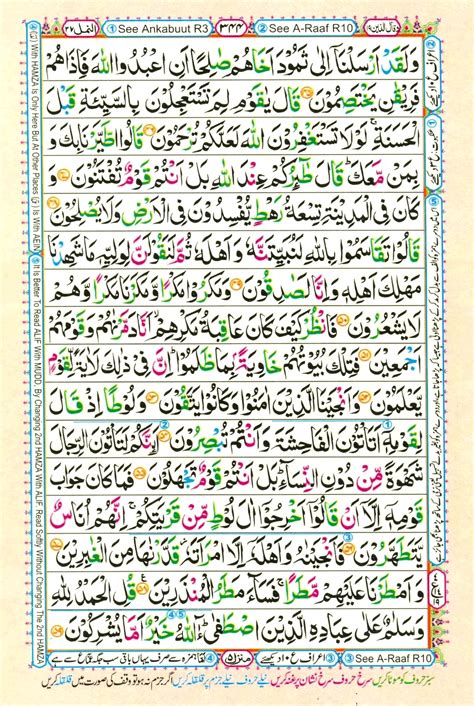 النمل ٢٧ ① See Ankabuut R3 ٣٤٤ ② See A-Raaf R10 وقال الذين ١٩
وَلَقَدْ اَرْسَلْنَاۤ اِلٰى ثَمُوْدَ اَخَاهُمْ صٰلِحًا اَنِ اعْبُدُوا اللّٰهَ فَاِذَا هُمْ
فَرِيْقٰنِ يَخْتَصِمُوْنَ ۝٤٥ قَالَ يٰقَوْمِ لِمَ تَسْتَعْجِلُوْنَ بِالسَّيِّئَةِ قَبْلَ
الْحَسَنَةِ ۚ لَوْلَا تَسْتَغْفِرُوْنَ اللّٰهَ لَعَلَّكُمْ تُرْحَمُوْنَ ۝٤٦ قَالُوا اطَّيَّرْنَا بِكَ وَ
بِمَنْ مَّعَكَ ؕ قَالَ طٰٓئِرُكُمْ عِنْدَ اللّٰهِ بَلْ اَنْتُمْ قَوْمٌ تُفْتَنُوْنَ ۝٤٧ وَ
كَانَ فِي الْمَدِيْنَةِ تِسْعَةُ رَهْطٍ يُّفْسِدُوْنَ فِي الْاَرْضِ وَلَا يُصْلِحُوْنَ ۝٤٨
قَالُوْا تَقَاسَمُوْا بِاللّٰهِ لَنُبَيِّتَنَّهٗ وَاَهْلَهٗ ثُمَّ لَنَقُوْلَنَّ لِوَلِيِّهٖ مَا شَهِدْنَا
مَهْلِكَ اَهْلِهٖ وَاِنَّا لَصٰدِقُوْنَ ۝٤٩ وَمَكَرُوْا مَكْرًا وَّمَكَرْنَا مَكْرًا وَّهُمْ
لَا يَشْعُرُوْنَ ۝٥٠ فَانْظُرْ كَيْفَ كَانَ عَاقِبَةُ مَكْرِهِمْ ۙ اَنَّا دَمَّرْنٰهُمْ وَقَوْمَهُمْ
اَجْمَعِيْنَ ۝٥١ فَتِلْكَ بُيُوْتُهُمْ خَاوِيَةًۢ بِمَا ظَلَمُوْا ؕ اِنَّ فِيْ ذٰلِكَ لَاٰيَةً لِّقَوْمٍ
يَّعْلَمُوْنَ ۝٥٢ وَاَنْجَيْنَا الَّذِيْنَ اٰمَنُوْا وَكَانُوْا يَتَّقُوْنَ ۝٥٣ وَلُوْطًا اِذْ قَالَ
لِقَوْمِهٖۤ اَتَاْتُوْنَ الْفَاحِشَةَ وَاَنْتُمْ تُبْصِرُوْنَ ۝٥٤ اَئِنَّكُمْ لَتَاْتُوْنَ الرِّجَالَ
شَهْوَةً مِّنْ دُوْنِ النِّسَآءِ ؕ بَلْ اَنْتُمْ قَوْمٌ تَجْهَلُوْنَ ۝٥٥ فَمَا كَانَ جَوَابَ
قَوْمِهٖۤ اِلَّاۤ اَنْ قَالُوْۤا اَخْرِجُوْۤا اٰلَ لُوْطٍ مِّنْ قَرْيَتِكُمْ ۚ اِنَّهُمْ اُنَاسٌ
يَّتَطَهَّرُوْنَ ۝٥٦ فَاَنْجَيْنٰهُ وَاَهْلَهٗۤ اِلَّا امْرَاَتَهٗ ؗ قَدَّرْنٰهَا مِنَ الْغٰبِرِيْنَ ۝٥٧
وَاَمْطَرْنَا عَلَيْهِمْ مَّطَرًا ۚ فَسَآءَ مَطَرُ الْمُنْذَرِيْنَ ۝٥٨ قُلِ الْحَمْدُ لِلّٰهِ
وَسَلٰمٌ عَلٰى عِبَادِهِ الَّذِيْنَ اصْطَفٰى ؕ آٰللّٰهُ خَيْرٌ اَمَّا يُشْرِكُوْنَ ۝٥٩
③ See A-Raaf R10 ③ اعراف ع ١٠ دیکھئے منزل ٥
With HAMZA Is Only Here But At Other Places (ع) Is With AEIN ⑤ It Is Better To Read ALIF With MUDD, By Changing 2nd HAMZA With ALIF Read Softly Without Changing The 2nd HAMZA